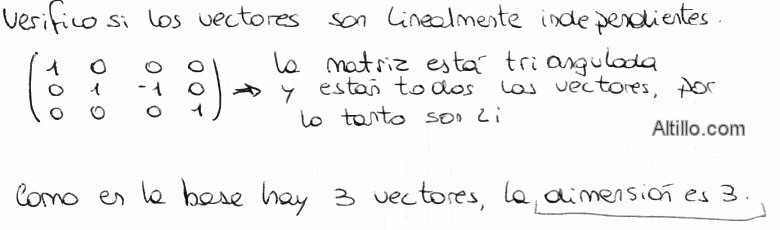 Verifico si los vectores son linealmente independientes.
1 0 0 0 la matriz está triangulada
0 1 -1 0 → y están todos los vectores, por
0 0 0 1 lo tanto son Li
Altillo.com
Como en la base hay 3 vectores, la dimensión es 3.